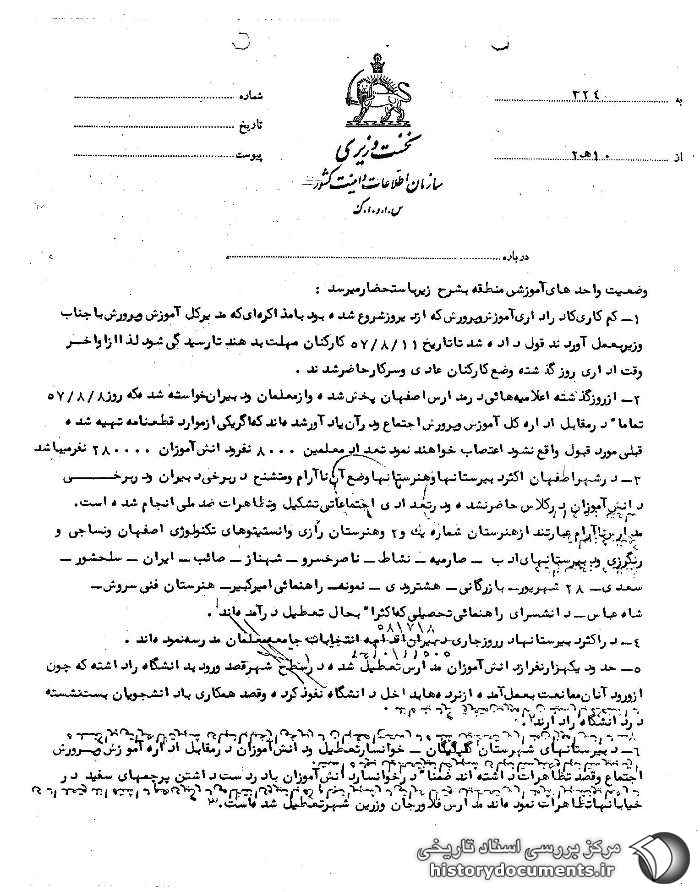 شماره
تاریخ
پیوست
نخست وزیری
سازمان اطلاعات و امنیت کشور
س.ا.و.ا.ک
به ۳۲۴
از ۱۰هـ۲۰
درباره
وضعیت واحد های آموزشی منطقه بشرح زیر باستحضار میرسد :
۱ـ کم کاری کادر اداری آموزش و پرورش که از دیروز شروع شده بود با مذاکره ای که مدیر کل آموزش و پرورش با جناب
وزیر بعمل آوردند قول داده شد تا تاریخ ۵۷/۸/۱۱ کارکنان مهلت بدهند تا رسیدگی شود لذا از اواخر
وقت اداری روز گذشته وضع کارکنان عادی و سرکار حاضر شدند .
۲ـ از روز گذشته اعلامیه هائی در مدارس اصفهان پخش شده و از معلمان و دبیران خواسته شده که روز ۵۷/۸/۸
تماما" در مقابل اداره کل آموزش و پرورش اجتماع و در آن یاد آور شده اند که اگر یکی از موارد قطعنامه تهیه شده
قبلی مورد قبول واقع نشود اعتصاب خواهند نمود تعداد معلمین ۸۰۰۰ نفر و دانش آموزان ۲۸۰۰۰۰ نفر میباشد
۳ـ در شهر اصفهان اکثر دبیرستانها و هنرستانها وضع آن نا آرام و متشنج در برخی دبیران و در برخی
دانش آموزان در کلاس حاضر نشده و در تعدادی اجتماعاتی تشکیل و تظاهرات ضد ملی انجام شده است.
مدارس نا آرام عبارتند از هنرستان شماره یک و ۲ و هنرستان رازی و انستیتوهای تکنولوژی اصفهان و نساجی و
رنگرزی و دبیرستانهای ادب ـ صارمیه ـ نشاط ـ ناصر خسرو ـ شهناز ـ صائب ـ ایران ـ سلحشور ـ
سعدی ـ ۲۸ شهریور ـ بازرگانی ـ هشترودی ـ نمونه ـ راهنمائی امیرکبیر ـ هنرستان فنی سروش ـ
شاه عباس ـ دانشسرای راهنمائی تحصیلی که اکثرا" بحال تعطیل در آمده اند .
۴ـ در اکثر دبیرستانها در روز جاری دبیران اقدام به انتخابات جامعه معلمان مدرسه نموده اند .
۵ـ حدود یکهزار نفر از دانش آموزان مدارس تعطیل شده در سطح شهر قصد ورود به دانشگاه را داشته که چون
از ورود آنان ممانعت بعمل آمده از نرده ها بداخل دانشگاه نفوذ کرده و قصد همکاری با دانشجویان بست نشسته
در دانشگاه را دارند .
۶ـ دبیرستانهای شهرستان گلپایگان ـ خوانسار تعطیل و دانش آموزان در مقابل اداره آموزش و پرورش
اجتماع و قصد تظاهرات داشته اند ضمنا" در خوانسار دانش آموزان با در دست داشتن پرچمهای سفید در
خیابانها تظاهرات نموده اند مدارس فلاورجان و زرین شهر تعطیل شده است.
مرکز بررسی اسناد تاریخی
historydocuments.ir